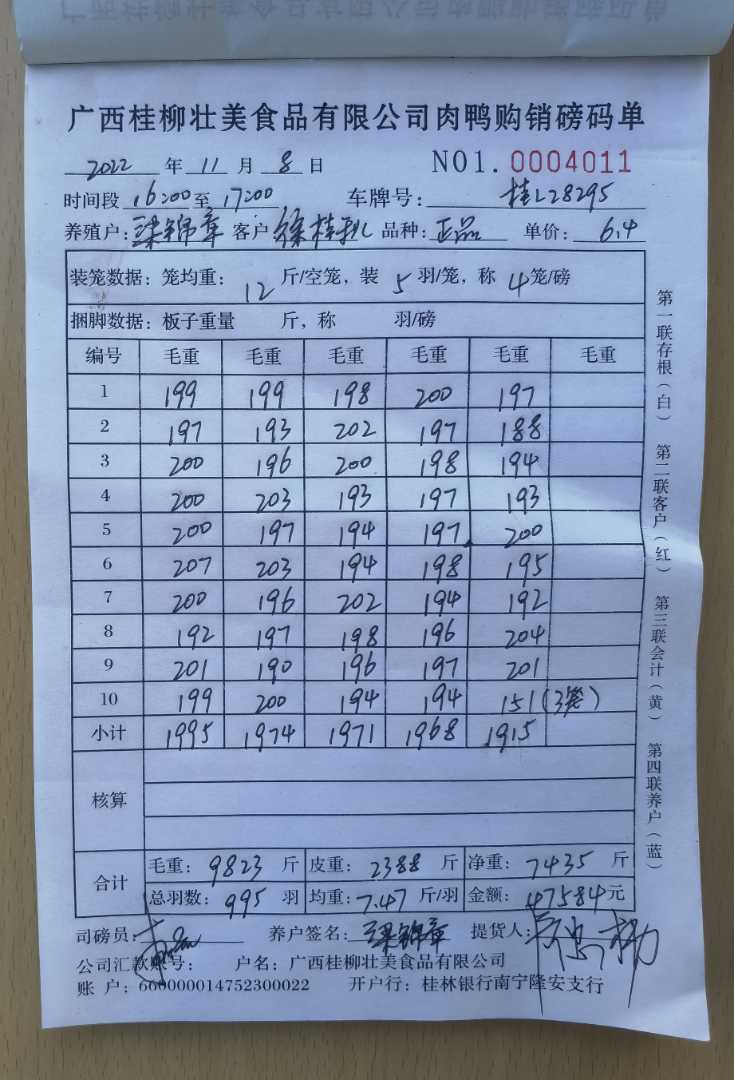 广西桂柳壮美食品有限公司肉鸭购销磅码单
2022 年 11 月 8 日 NO1. 0004011
时间段 16:00 至 17:00 车牌号: 桂L28295
养殖户: 梁锦章 客户 徐桂 品种: 正品 单价: 6.4
装笼数据: 笼均重: 12 斤/空笼, 装 5 羽/笼, 称 4 笼/磅
捆脚数据: 板子重量 斤, 称 羽/磅
编号 毛重 毛重 毛重 毛重 毛重 毛重
1 199 199 198 200 197
2 197 193 202 197 188
3 200 196 200 198 194
4 200 203 193 197 193
5 200 197 194 197 200
6 207 203 194 198 195
7 200 196 202 194 192
8 192 197 198 196 204
9 201 190 196 197 201
10 199 200 194 194 151(3笼)
小计 1995 1974 1971 1968 1915
核算
合计 毛重: 9823 斤 皮重: 2388 斤 净重: 7435 斤
总羽数: 995 羽 均重: 7.47 斤/羽 金额: 47584 元
司磅员: 养户签名: 梁锦章 提货人:
公司汇款账号: 户名: 广西桂柳壮美食品有限公司
账 户: 660000014752300022 开户行: 桂林银行南宁隆安支行
第一联存根(白) 第二联客户(红) 第三联会计(黄) 第四联养户(蓝)